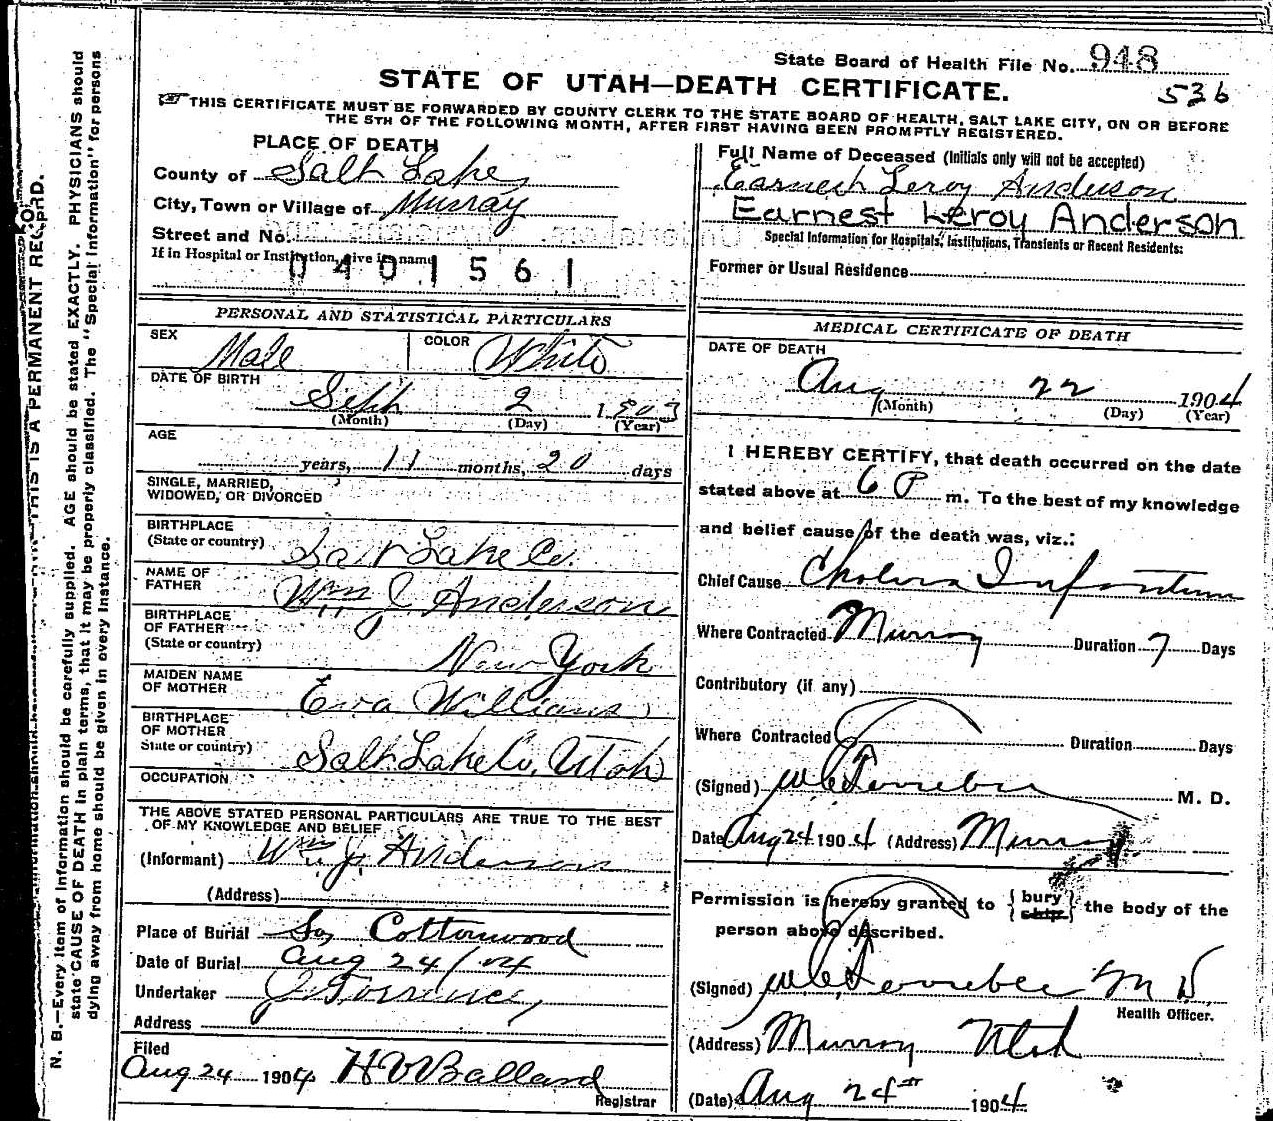 State Board of Health File No. 948
STATE OF UTAH—DEATH CERTIFICATE.
536
THIS CERTIFICATE MUST BE FORWARDED BY COUNTY CLERK TO THE STATE BOARD OF HEALTH, SALT LAKE CITY, ON OR BEFORE
THE 5TH OF THE FOLLOWING MONTH, AFTER FIRST HAVING BEEN PROMPTLY REGISTERED.
PLACE OF DEATH
County of Salt Lake
City, Town or Village of Murray
Street and No.
If in Hospital or Institution, give its name
0401561
PERSONAL AND STATISTICAL PARTICULARS
SEX Male
COLOR White
DATE OF BIRTH
Sept 2 1903
(Month) (Day) (Year)
AGE
years, 11 months, 20 days
SINGLE, MARRIED,
WIDOWED, OR DIVORCED
BIRTHPLACE
(State or country) Salt Lake Co.
NAME OF
FATHER Wm J. Anderson
BIRTHPLACE
OF FATHER
(State or country) New York
MAIDEN NAME
OF MOTHER Eva Williams
BIRTHPLACE
OF MOTHER
State or country) Salt Lake Co. Utah
OCCUPATION
THE ABOVE STATED PERSONAL PARTICULARS ARE TRUE TO THE BEST
OF MY KNOWLEDGE AND BELIEF
(Informant) Wm J. Anderson
(Address)
Place of Burial So Cottonwood
Date of Burial Aug 24/04
Undertaker J. Torrence
Address
Filed
Aug 24 1904 H V Ballard
Registrar
Full Name of Deceased (Initials only will not be accepted)
Earnest Leroy Anderson
Earnest Leroy Anderson
Special Information for Hospitals, Institutions, Transients or Recent Residents:
Former or Usual Residence
MEDICAL CERTIFICATE OF DEATH
DATE OF DEATH
Aug 22 1904
(Month) (Day) (Year)
I HEREBY CERTIFY, that death occurred on the date
stated above at 6 P m. To the best of my knowledge
and belief cause of the death was, viz.:
Chief Cause Cholera Infantum
Where Contracted Murray Duration 7 Days
Contributory (if any)
Where Contracted Duration Days
(Signed) M. D.
Date Aug 24 1904 (Address) Murray
Permission is hereby granted to { bury ship } the body of the
person above described.
(Signed) M D
Health Officer.
(Address) Murray Utah
(Date) Aug 24th 1904
N. B.—Every item of information should be carefully supplied. AGE should be stated EXACTLY. PHYSICIANS should
state CAUSE OF DEATH in plain terms, that it may be properly classified. The "Special Information" for persons
dying away from home should be given in every instance.
THIS IS A PERMANENT RECORD.